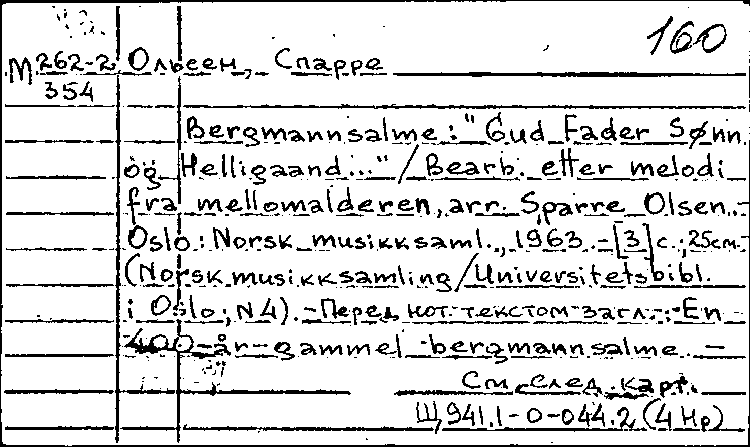 160
М 262-2 Ольсен, Спарре
354
Bergmannsalme: "Gud Fader Sønn
og Helligaand..." / Bearb. etter melodi
fra mellomalderen, arr. Sparre Olsen. -
Oslo: Norsk musikksaml., 1963. - [3] с.; 25см. -
(Norsk musikksamling / Universitetsbibl.
i Oslo; N 4). - Перед нот. текстом загл.: En
400-år-gammel bergmannsalme. -
См. след. карт.
Щ941.1-0-044.2 (4Нр)